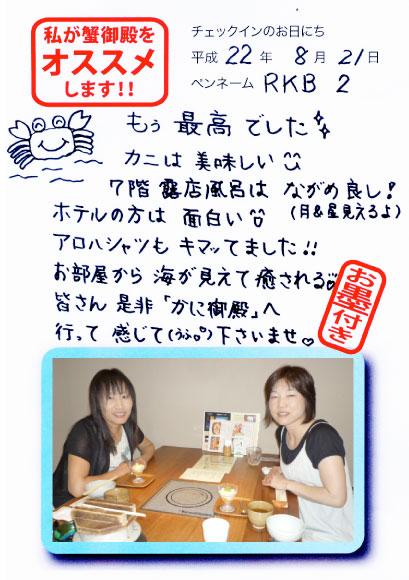 私が蟹御殿を
オススメ
します!!
チェックインのお日にち
平成 22 年 8 月 21 日
ペンネーム RKB 2
もぅ 最高 でした
カニは 美味しい
7階 露店風呂は ながめ良し!
(月&星見えるよ)
ホテルの方は 面白い
アロハシャツも キマッてました!!
お部屋から 海が見えて癒される
皆さん 是非「かに御殿」へ
行って 感じて(うふっ)下さいませ
お墨付き